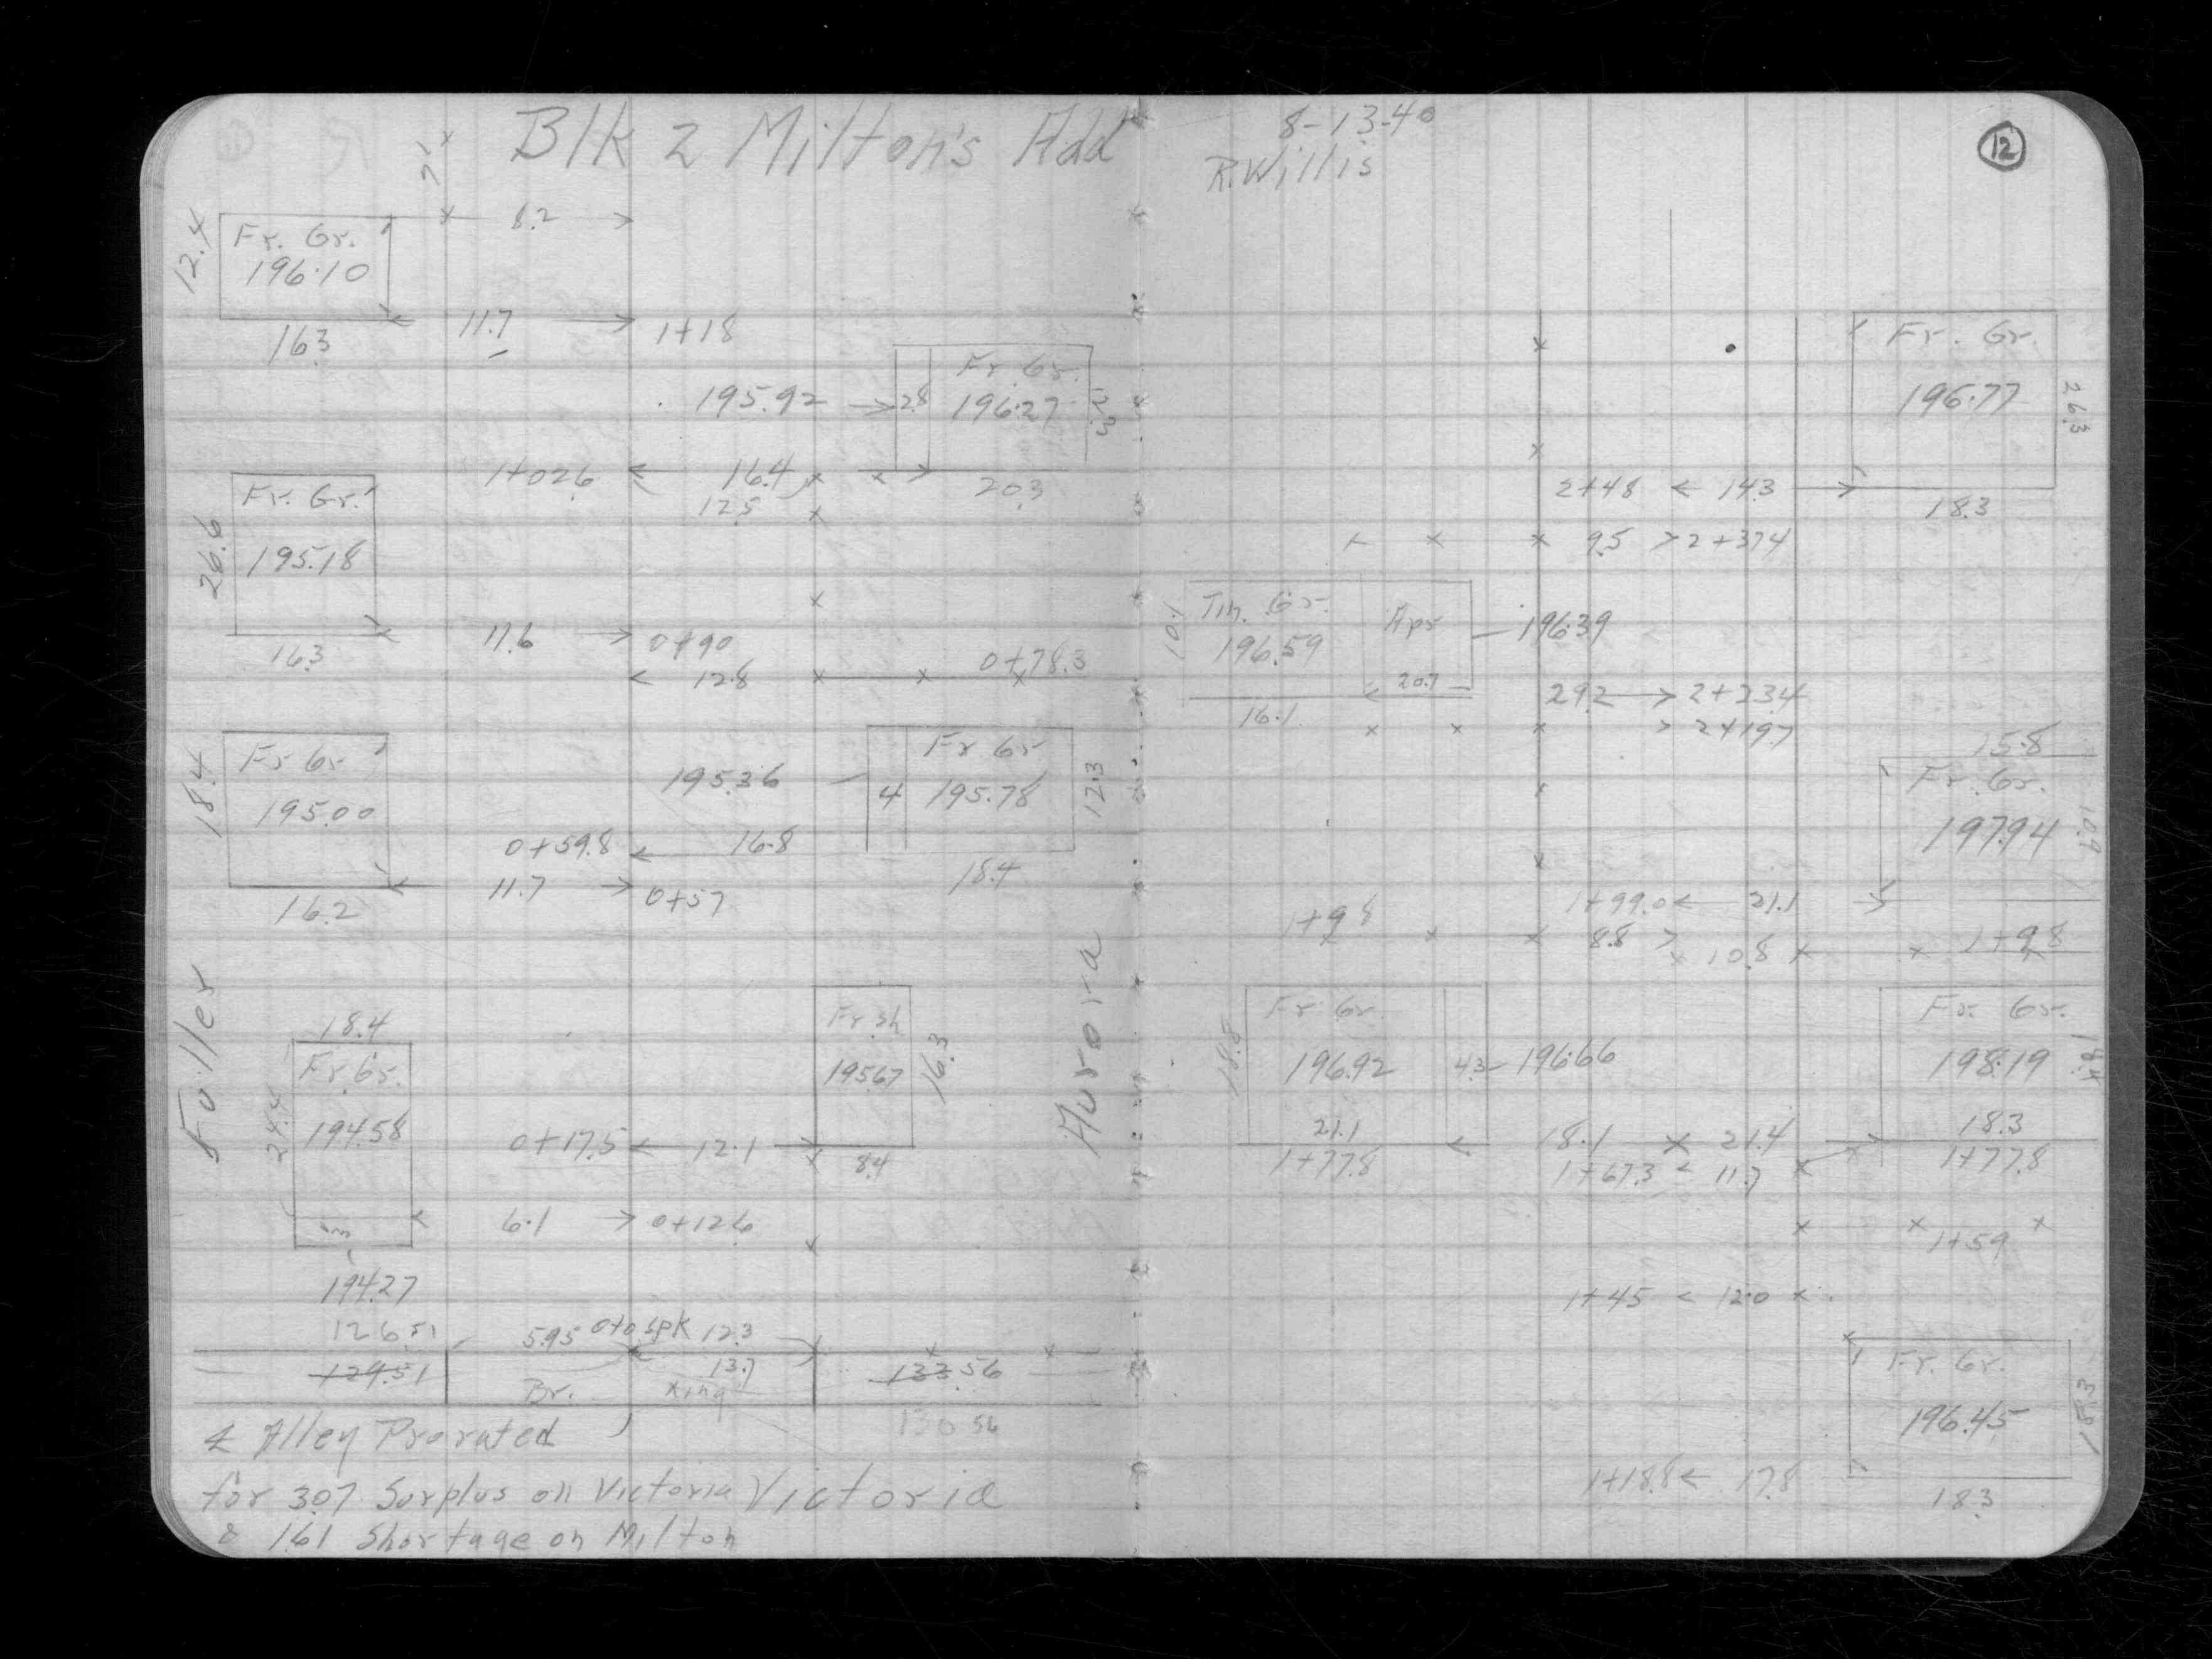 Blk 2 Milton's Add
8.2
12.4
Fr. Gr.
196.10
16.3
11.7
1+18
195.92
2.8
Fr. Gr.
196.27
20.3
1+02.6
16.4
12.5
26.6
Fr. Gr.
195.18
16.3
11.6
0+90
12.8
0+78.3
18.4
Fr Gr
195.00
16.2
195.36
4
Fr Gr
195.78
12.3
18.4
0+59.8
16.8
11.7
0+57
Fuller
18.4
Fr. Gr.
24.4
194.58
194.27
Fr sh
195.67
16.3
8.4
0+17.5
12.1
6.1
0+12.6
Aurora
126.51
5.95
0+0 spk
12.3
129.51
Br.
13.7
xing
133.56
130.56
℄ Alley Prorated
for 3.07 Surplus on Victoria
Victoria
& 1.61 Shortage on Milton
8-13-40
R. Willis
12
Fr. Gr.
196.77
26.3
18.3
2+48
14.3
9.5
2+37.4
10.1
Tin. Gr.
196.59
Apr
196.39
20.7
16.1
29.2
2+23.4
2+19.7
15.8
Fr. Gr.
197.94
10.9
1+99.0
21.1
1+98
8.8
10.8
1+98
18.8
Fr Gr.
196.92
4.3
196.66
21.1
1+77.8
Fr. Gr.
198.19
18.4
18.3
1+77.8
18.1
21.4
1+67.3
11.7
1+59
1+45
12.0
Fr. Gr.
196.45
18.3
18.3
1+18.8
17.8